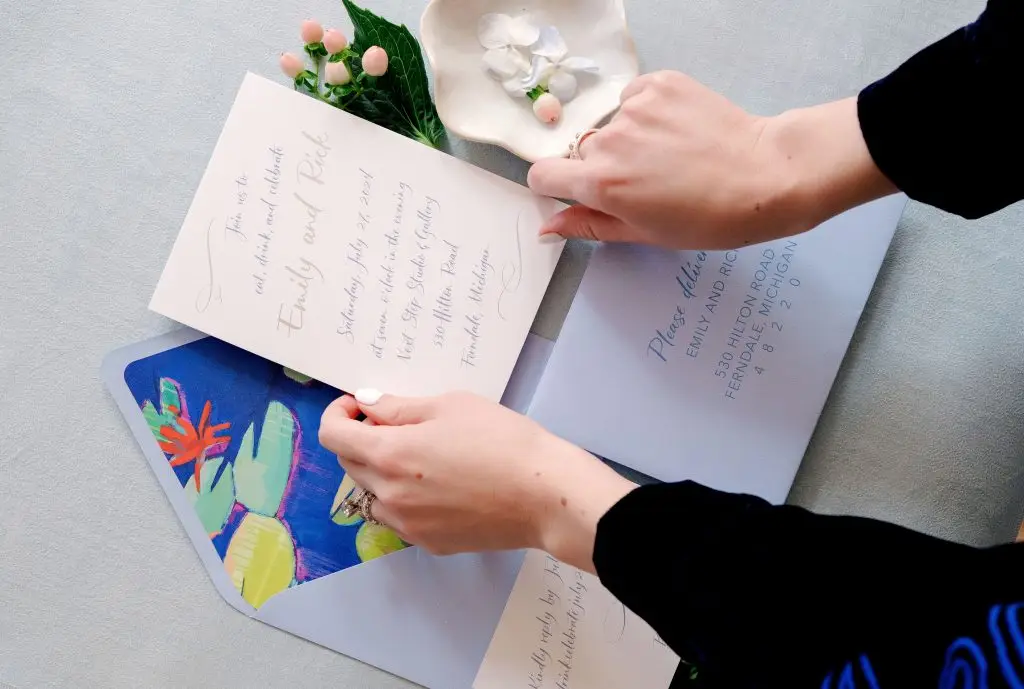 Join us to
eat, drink, and celebrate
Emily and Rick
Saturday, July 27, 2024
at seven o'clock in the evening
Next Step Studio & Gallery
530 Hilton Road
Ferndale, Michigan
Please deliver
EMILY AND RIC
530 HILTON ROAD
FERNDALE, MICHIGAN
4 8 2 2 0
Kindly reply by Jul
drink celebrate july 2